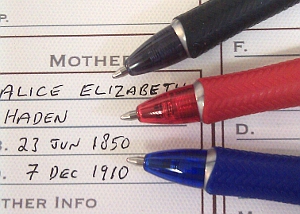 MOTHER
F.
ALICE ELIZABETH
HADEN
B. 23 JUN 1850
D. 7 DEC 1910
D.
OTHER INFO
M